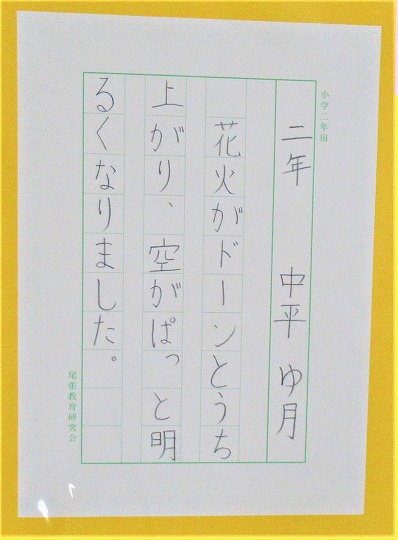 小学二年用
二年 中平 ゆ月
花火がドーンとうち
上がり、空がぱっと明
るくなりました。
尾張教育研究会